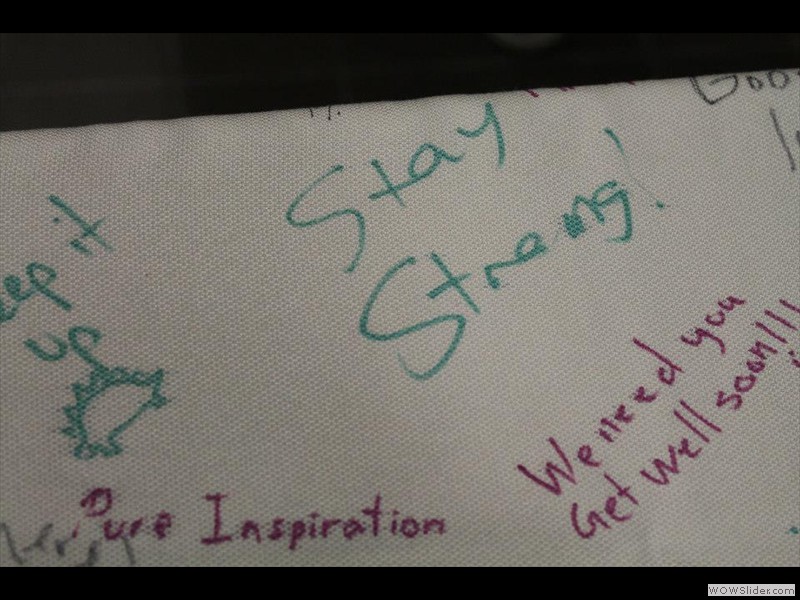 Stay
Strong!
it
up
We need you
Get well soon!!!
Pure Inspiration
WOWSlider.com